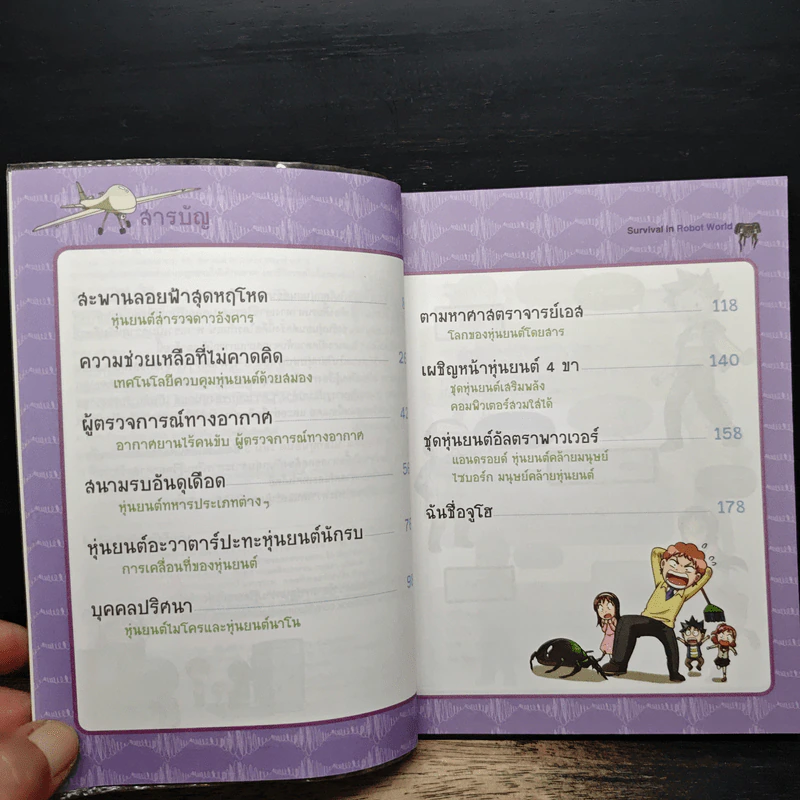 สารบัญ
สะพานลอยฟ้าสุดหฤโหด
หุ่นยนต์สำรวจดาวอังคาร
ความช่วยเหลือที่ไม่คาดคิด
เทคโนโลยีควบคุมหุ่นยนต์ด้วยสมอง
ผู้ตรวจการณ์ทางอากาศ
อากาศยานไร้คนขับ ผู้ตรวจการณ์ทางอากาศ
สนามรบอันดุเดือด
หุ่นยนต์ทหารประเภทต่างๆ
หุ่นยนต์อะวาตาร์ปะทะหุ่นยนต์นักรบ
การเคลื่อนที่ของหุ่นยนต์
บุคคลปริศนา
หุ่นยนต์ไมโครและหุ่นยนต์นาโน
Survival in Robot World
ตามหาศาสตราจารย์เอส 118
โลกของหุ่นยนต์โดยสาร
เผชิญหน้าหุ่นยนต์ 4 ขา 140
ชุดหุ่นยนต์เสริมพลัง
คอมพิวเตอร์สวมใส่ได้
ชุดหุ่นยนต์อัลตราพาวเวอร์ 158
แอนดรอยด์ หุ่นยนต์คล้ายมนุษย์
ไซบอร์ก มนุษย์คล้ายหุ่นยนต์
ฉันชื่อจูโฮ 178